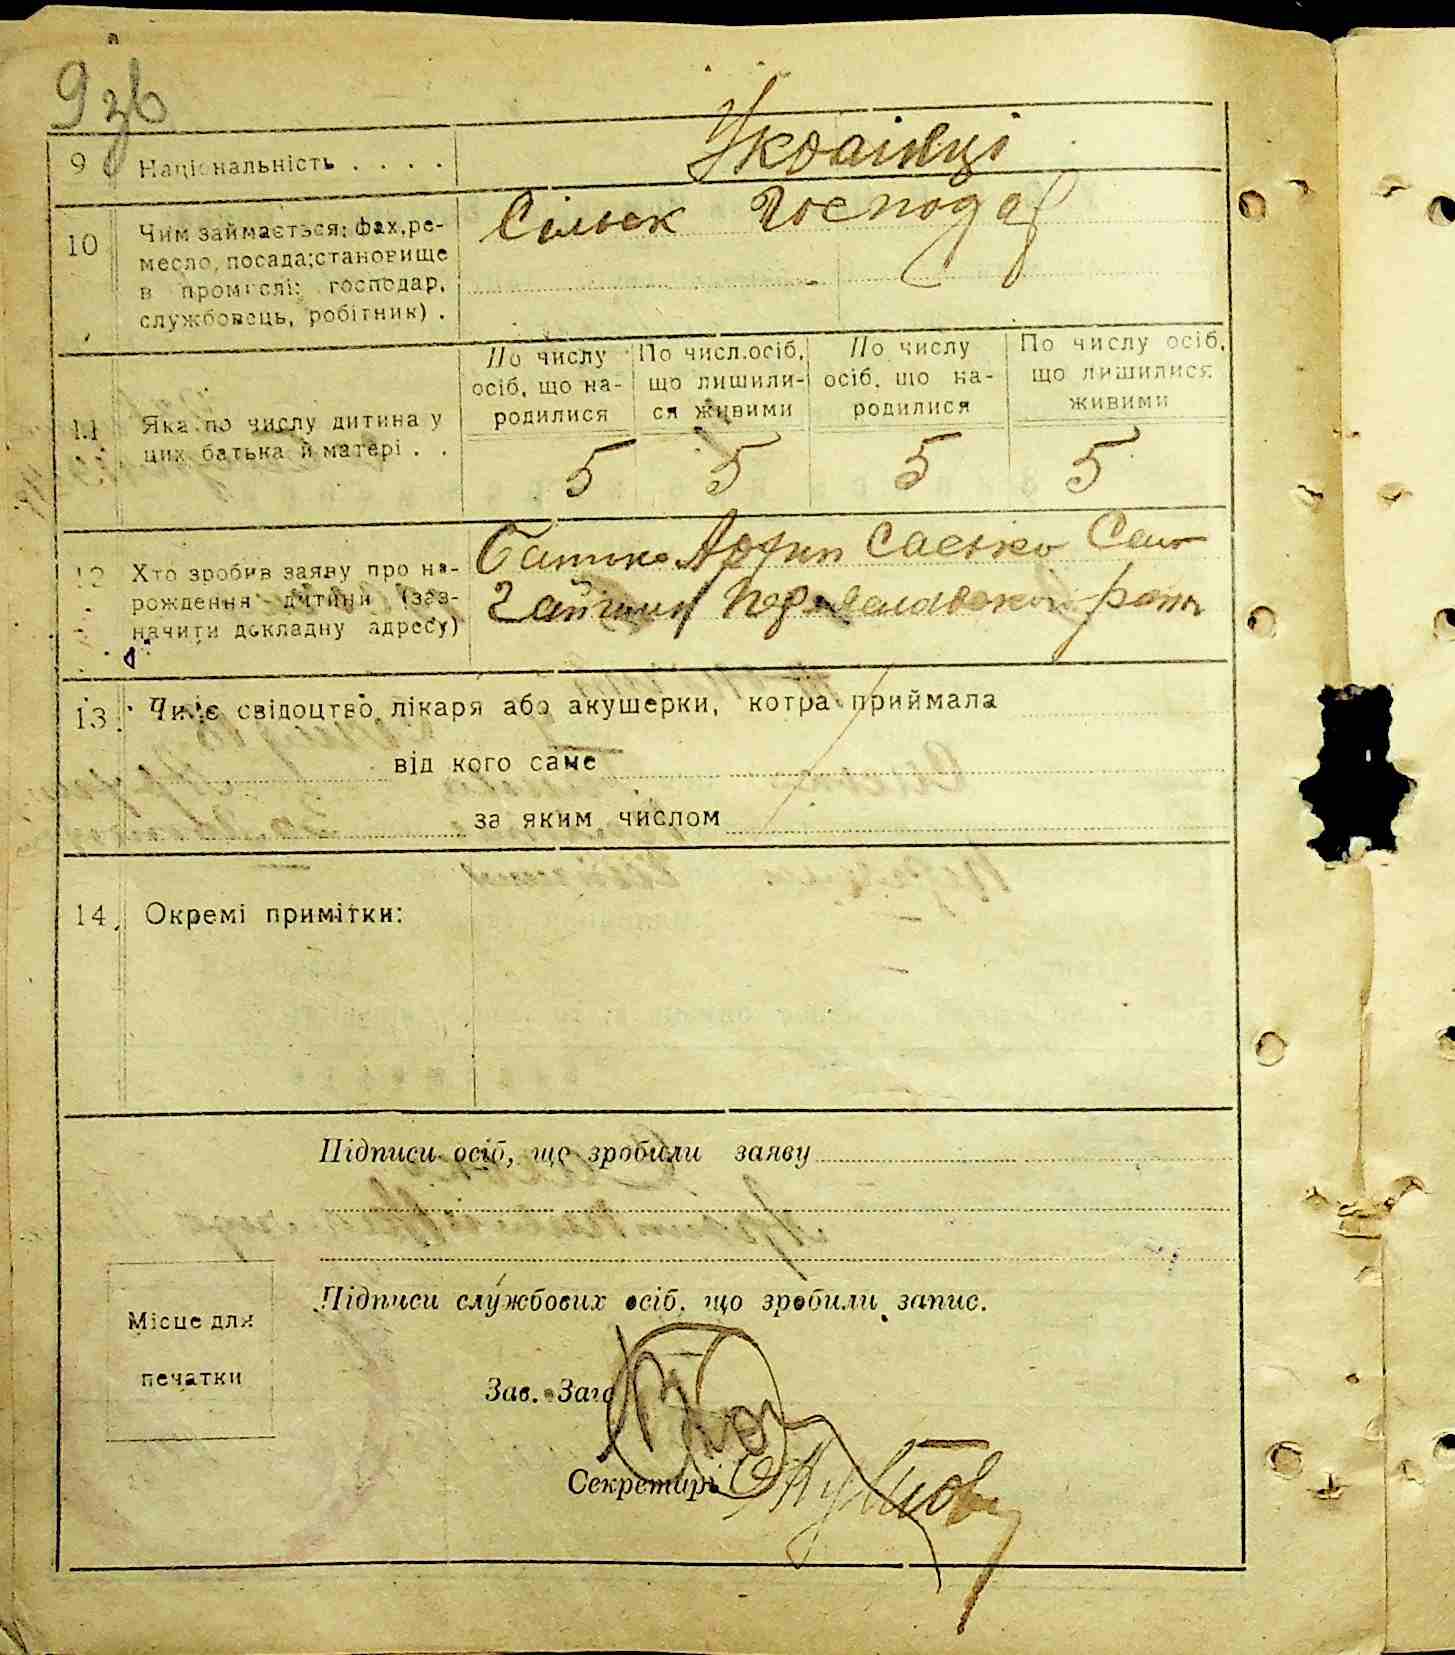 9 зв
9 Національність . . . . Українці
10 Чим займається: фах, ре-
месло, посада; становище
в промислі: господар,
службовець, робітник) .
Сільск Господар
11 Яка по числу дитина у
цих батька й матері . .
По числу
осіб, що на-
родилися
По числ. осіб,
що лишили-
ся живими
По числу
осіб, що на-
родилися
По числу осіб,
що лишилися
живими
5 5 5 5
12 Хто зробив заяву про на-
рождення дитини (заз-
начити докладну адресу)
Батько Саєнко Село
Гайшин Переяславської
13. Чи є свідоцтво лікаря або акушерки, котра приймала
від кого саме
за яким числом
14. Окремі примітки:
Підписи осіб, що зробили заяву
Підписи службових осіб, що зробили запис.
Місце для
печатки
Зав. Заг
Секретарь